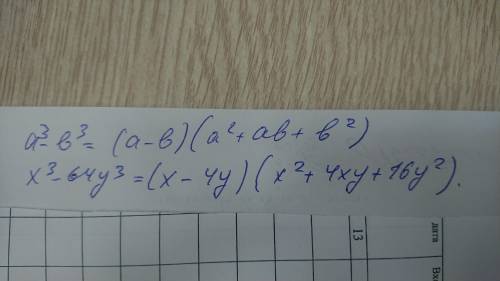 a³-b³=(a-b)(a²+ab+b²)
x³-64y³=(x-4y)(x²+4xy+16y²).
13
дата
Вхо